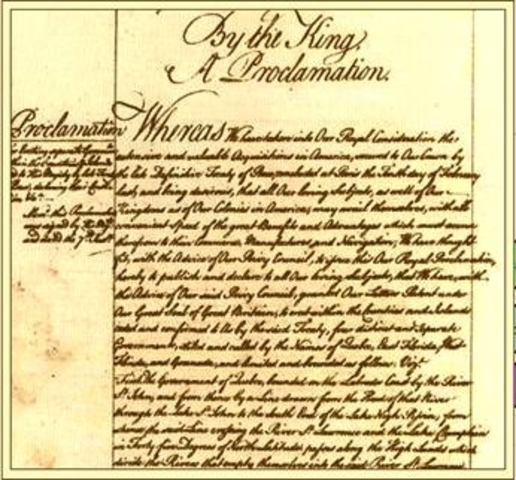 By the King,
A Proclamation.
Proclamation
Whereas We have taken into Our Royal Consideration the
extensive and valuable Acquisitions in America, secured to Our Crown by
the late Definitive Treaty of Peace, concluded at Paris the Tenth day of February
last, and being desirous, that all Our loving Subjects, as well of Our
Kingdoms as of Our Colonies in America, may avail themselves, with all
convenient Speed, of the great Benefits and Advantages which must accrue
therefrom to their Commerce, Manufactures, and Navigation; We have thought
fit, with the Advice of Our Privy Council, to issue this Our Royal Proclamation,
hereby to publish and declare to all Our loving Subjects, that We have, with
the Advice of Our said Privy Council, granted Our Letters Patent under
Our Great Seal of Great Britain, to erect within the Countries and Islands
ceded and confirmed to Us by the said Treaty, four distinct and separate
Governments, stiled and called by the Names of Quebec, East Florida, West
Florida, and Grenada, and limited and bounded as follows; Vizt.
First, the Government of Quebec, bounded on the Labrador Coast by the River
St. John, and from thence by a Line drawn from the Head of that River
through the Lake St. John to the South End of the Lake Nigh Pissin; from
whence the said Line crossing the River St. Lawrence and the Lake Champlain
in Forty five Degrees of North Latitude, passes along the High Lands which
divide the Rivers that empty themselves into the said River St. Lawrence